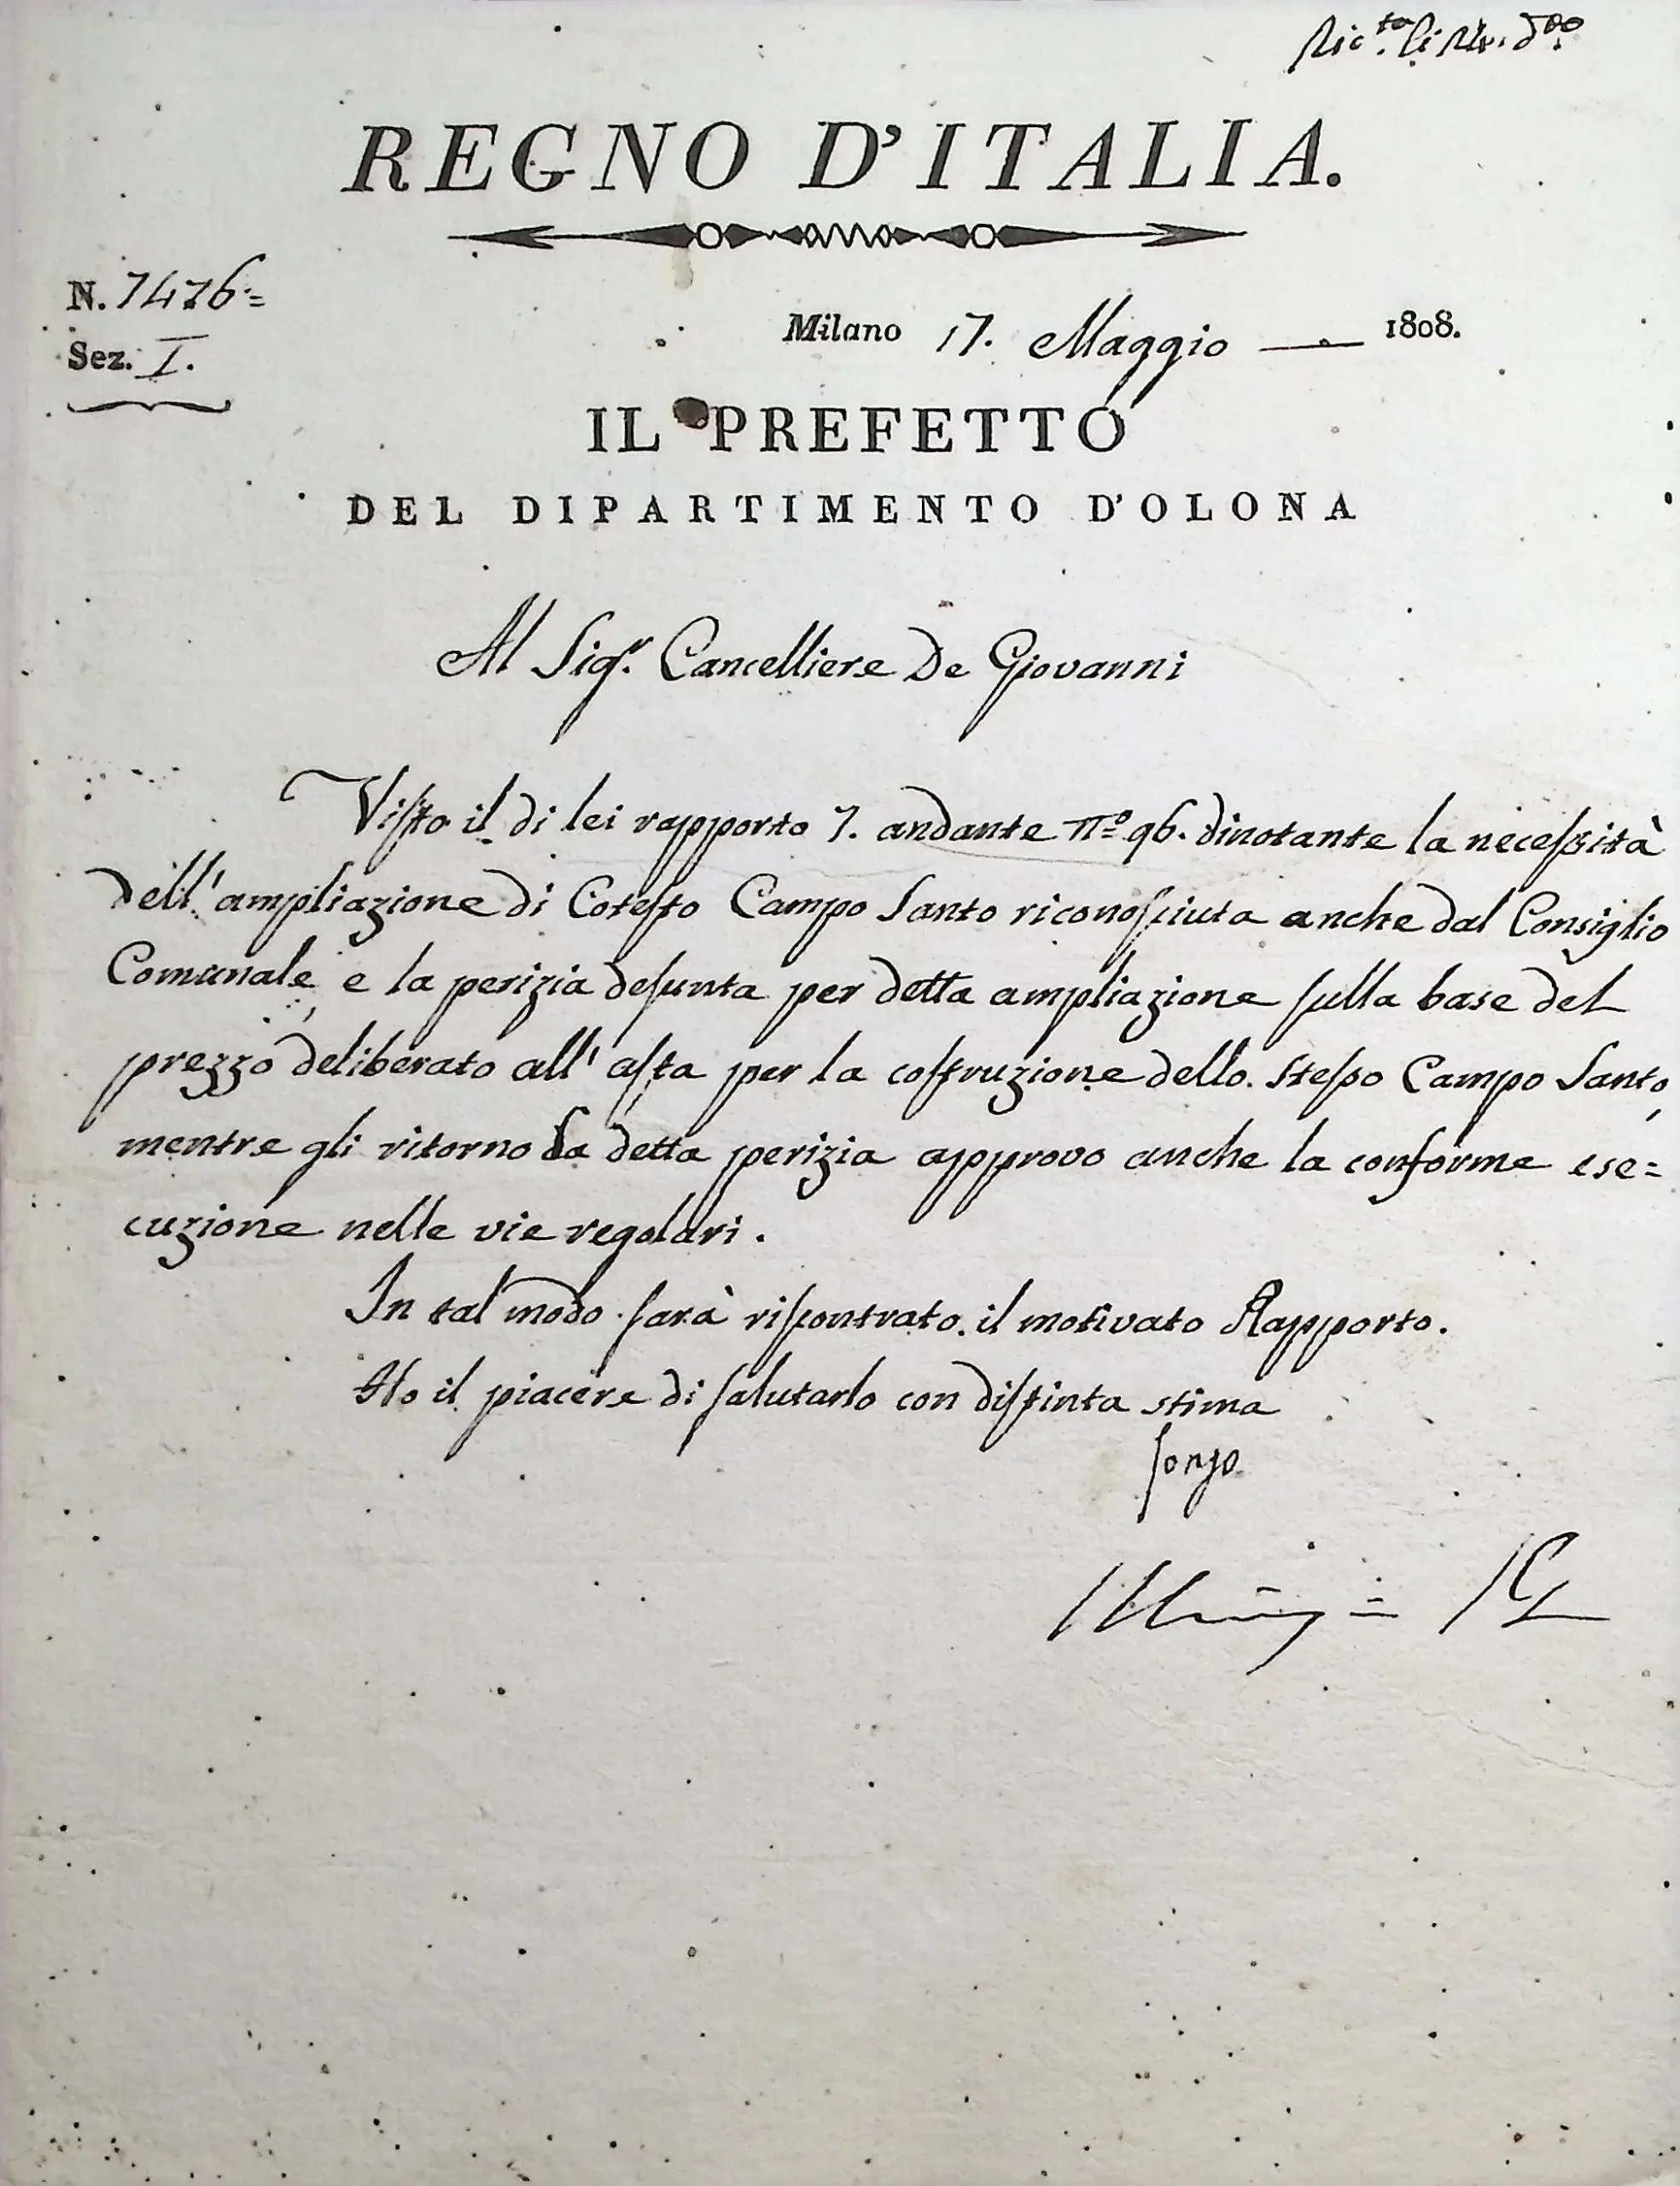 Ric.ta li
REGNO D'ITALIA.
N. 7476=
Milano 17. Maggio — 1808.
Sez. I.
IL PREFETTO
DEL DIPARTIMENTO D'OLONA
Al Sigr. Cancelliere De Giovanni
Visto il di lei rapporto 7. andante No. 96. dinotante la necessità
dell'ampliazione di Cotesto Campo Santo riconosciuta anche dal Consiglio
Comunale, e la perizia desunta per detta ampliazione sulla base del
prezzo deliberato all'asta per la costruzione dello stesso Campo Santo,
mentre gli ritorno la detta perizia approvo anche la conforme ese=
cuzione nelle vie regolari.
In tal modo sarà riscontrato il motivato Rapporto.
Ho il piacere di salutarlo con distinta stima